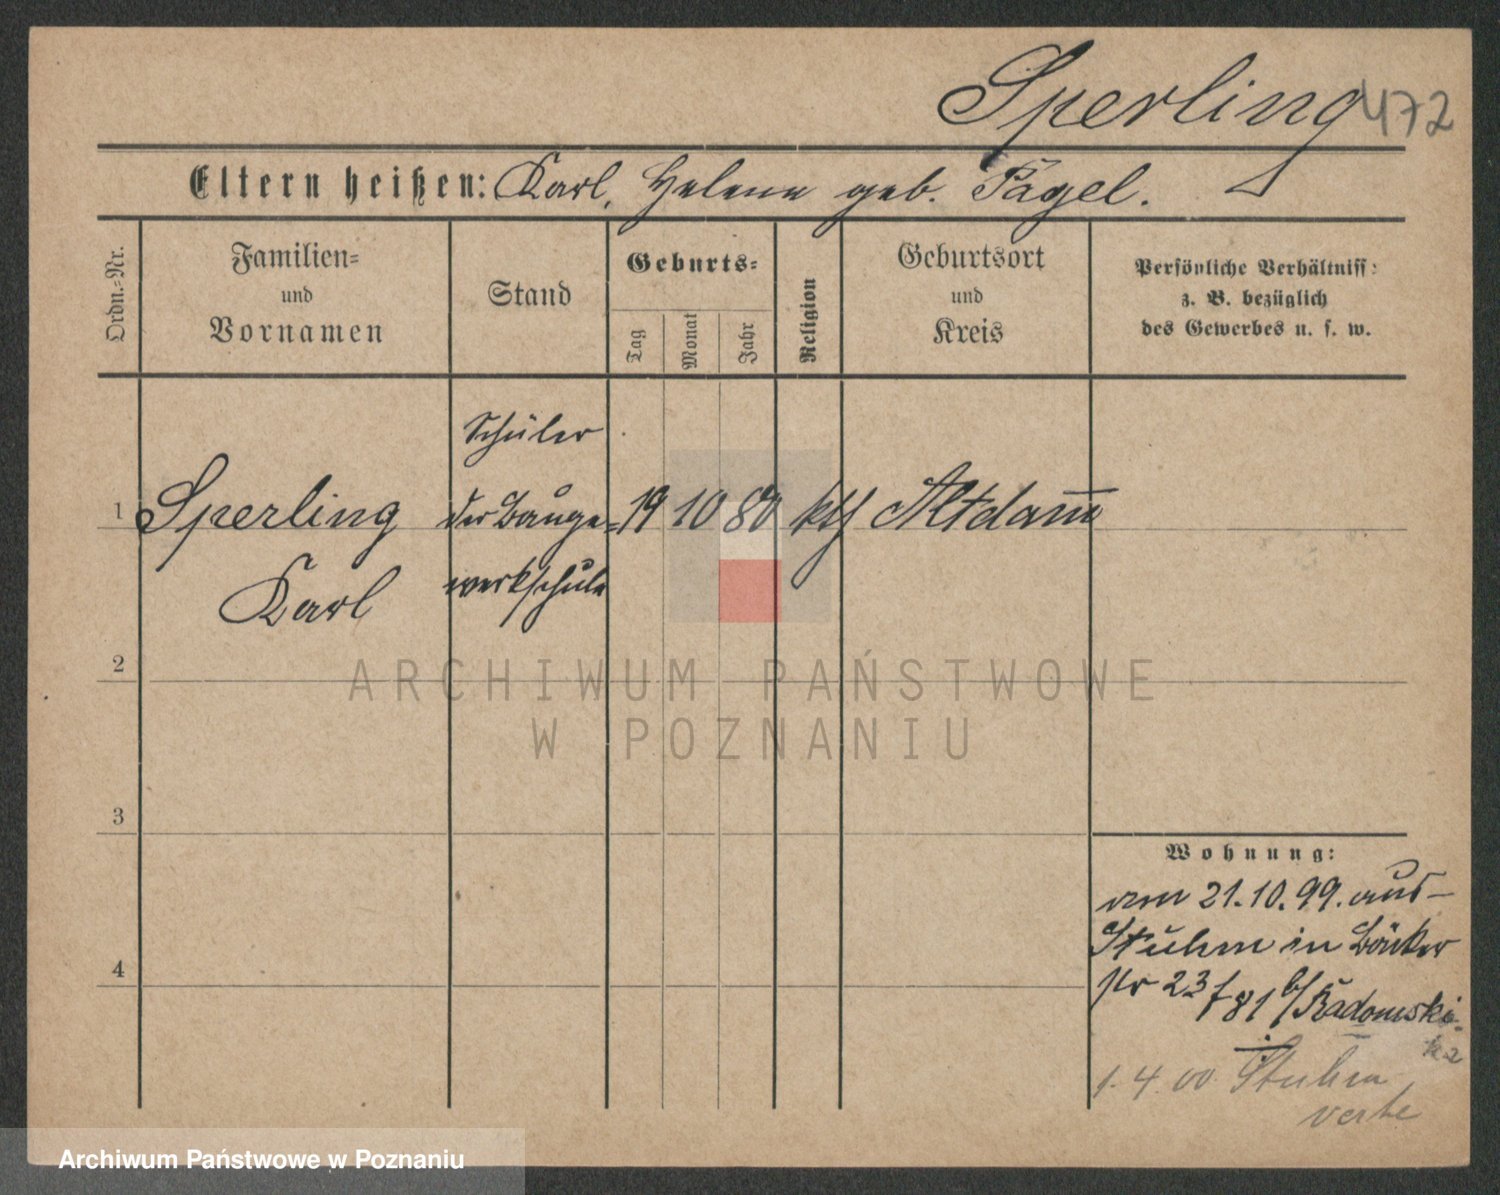 Sperling 472
Eltern heißen: Karl, Helene geb. Pagel.
Ordn.-Nr.
Familien-
und
Vornamen
Stand
Geburts-
Tag
Monat
Jahr
Religion
Geburtsort
und
Kreis
Persönliche Verhältniss:
z. B. bezüglich
des Gewerbes u. s. w.
Schüler
1 Sperling der Bauge- 19 10 80 kth Altdam̅
Karl werkschule
2
3
4
ARCHIWUM PAŃSTWOWE
W POZNANIU
Wohnung:
am 21.10.99. aus
Stuhm in Bäcker
str 23 f 81 b/ Radomski
1. 4. 00 Stuhm
Archiwum Państwowe w Poznaniu